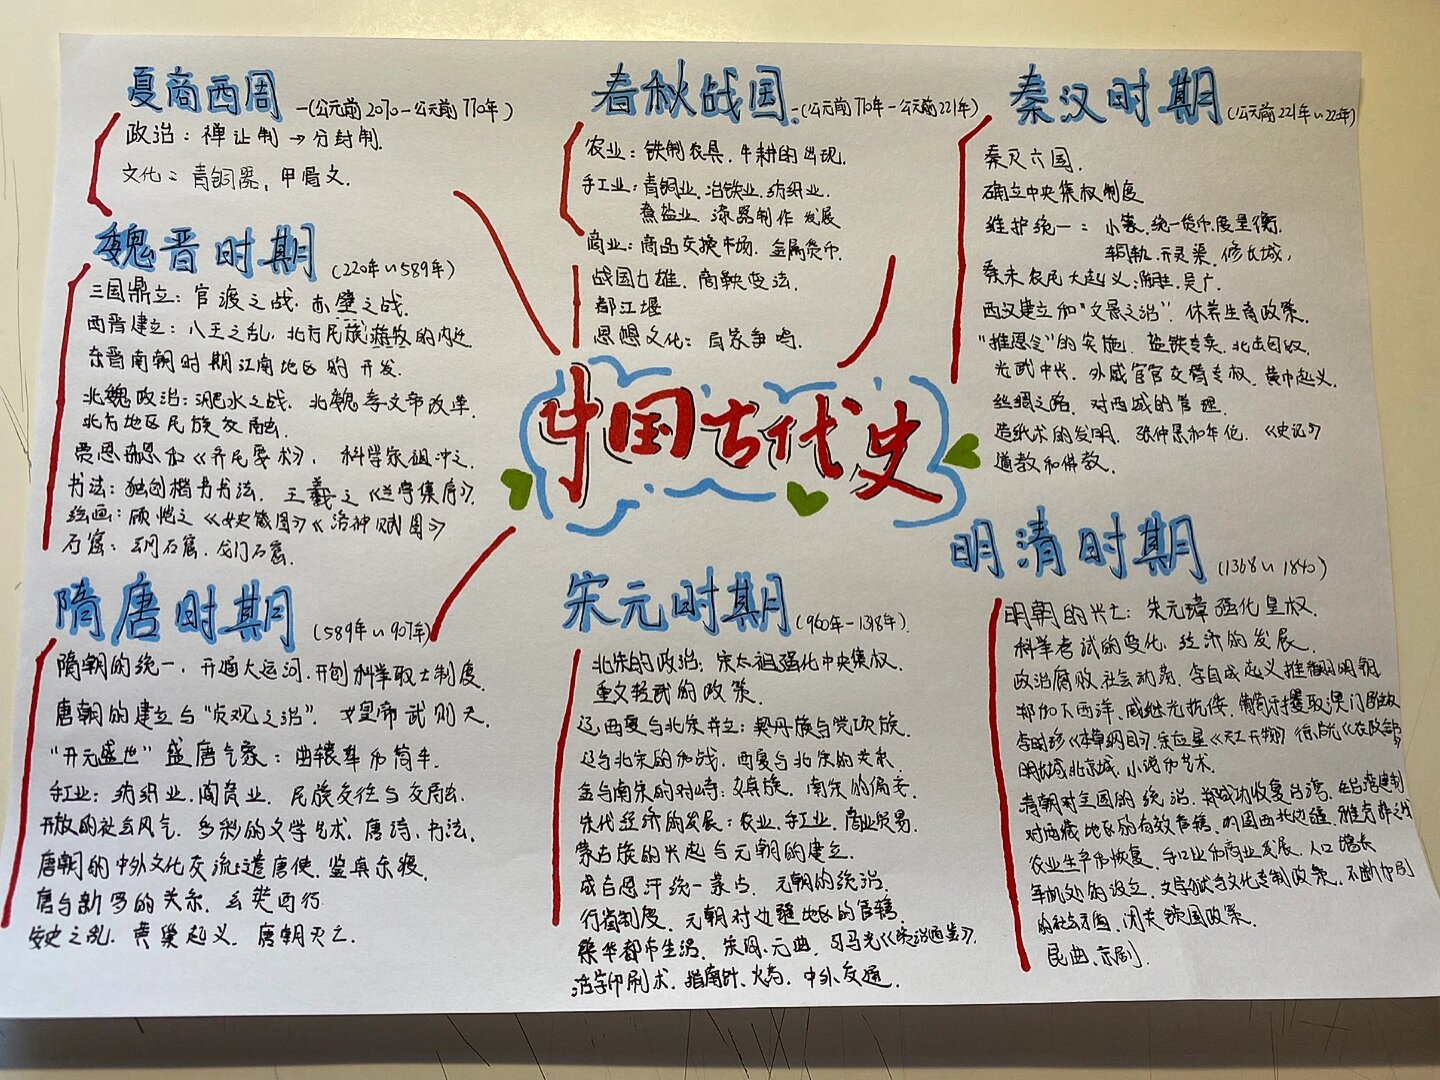 夏商西周 -(公元前2070-公元前770年)
政治：禅让制→分封制.
文化：青铜器、甲骨文.
春秋战国 -(公元前770年-公元前221年)
农业：铁制农具, 牛耕的出现.
手工业：青铜业. 冶铁业. 纺织业.
煮盐业. 漆器制作 发展
商业：商品交换市场. 金属货币.
战国七雄. 商鞅变法.
都江堰
思想文化：百家争鸣.
秦汉时期 (公元前221年~220年)
秦灭六国.
确立中央集权制度
维护统一：小篆. 统一货币. 度量衡.
车同轨. 开灵渠. 修长城,
秦末农民大起义：陈胜. 吴广.
西汉建立和“文景之治”. 休养生息政策.
“推恩令”的实施. 盐铁专卖. 北击匈奴.
光武中兴. 外戚宦官交替专权. 黄巾起义.
丝绸之路. 对西域的管理.
造纸术的发明. 张仲景和华佗. 《史记》
道教和佛教.
魏晋时期 (220年~589年)
三国鼎立：官渡之战. 赤壁之战.
西晋建立：八王之乱. 北方民族游牧的内迁
东晋南朝时期江南地区的开发.
北魏政治：淝水之战. 北魏孝文帝改革.
北方地区民族交融.
贾思勰和《齐民要术》, 科学家祖冲之.
书法：独创楷书书法. 王羲之《兰亭集序》.
绘画：顾恺之《女史箴图》《洛神赋图》
石窟：云冈石窟. 龙门石窟.
中国古代史
隋唐时期 (589年~907年)
隋朝的统一, 开通大运河. 开创科举取士制度.
唐朝的建立与“贞观之治”. 女皇帝武则天.
“开元盛世” 盛唐气象：曲辕犁和筒车.
手工业：纺织业. 陶瓷业. 民族交往与交融.
开放的社会风气. 多彩的文学艺术. 唐诗. 书法.
唐朝的中外文化交流：遣唐使. 鉴真东渡.
唐与新罗的关系. 玄奘西行
安史之乱. 黄巢起义. 唐朝灭亡.
宋元时期 (960年-1368年).
北宋的政治：宋太祖强化中央集权.
重文轻武的政策.
辽. 西夏与北宋并立：契丹族与党项族.
辽与北宋的和战. 西夏与北宋的关系.
金与南宋的对峙：女真族. 南宋的偏安.
宋代经济的发展：农业. 手工业. 商业贸易.
蒙古族的兴起与元朝的建立.
成吉思汗统一蒙古. 元朝的统治.
行省制度. 元朝对边疆地区的管辖.
繁华都市生活. 宋词. 元曲. 司马光《资治通鉴》.
活字印刷术. 指南针. 火药. 中外交通.
明清时期 (1368~1840)
明朝的兴亡：朱元璋强化皇权.
科举考试的变化. 经济的发展.
政治腐败. 社会动荡. 李自成起义推翻明朝
郑和下西洋. 戚继光抗倭. 葡萄牙攫取澳门居住权
李时珍《本草纲目》. 宋应星《天工开物》 徐光启《农政全书》
明长城. 北京城. 小说和艺术.
清朝对全国的统治. 郑成功收复台湾. 在台湾建制
对西藏地区的有效管辖. 巩固西北边疆. 雅克萨之战
农业生产的恢复. 手工业和商业发展. 人口增长
军机处的设立. 文字狱与文化专制政策. 不断加剧
的社会矛盾. 闭关锁国政策.
昆曲. 京剧.